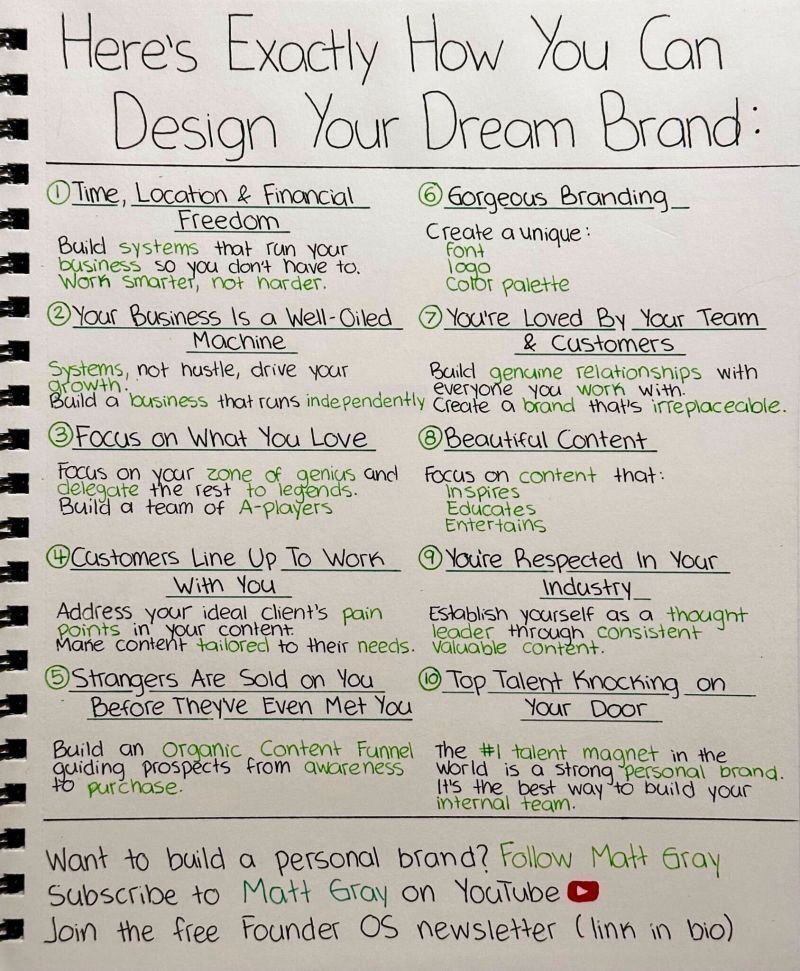 Here's Exactly How You Can
Design Your Dream Brand:
① Time, Location & Financial
Freedom
Build systems that run your
business so you don't have to.
Work smarter, not harder.
② Your Business Is a Well-Oiled
Machine
Systems, not hustle, drive your
growth.
Build a business that runs independently
③ Focus on What You Love
Focus on your zone of genius and
delegate the rest to legends.
Build a team of A-players
④ Customers Line Up To Work
With You
Address your ideal client's pain
points in your content
Make content tailored to their needs.
⑤ Strangers Are Sold on You
Before They've Even Met You
Build an Organic Content Funnel
guiding prospects from awareness
to purchase.
⑥ Gorgeous Branding
Create a unique:
font
logo
Color palette
⑦ You're Loved By Your Team
& Customers
Build genuine relationships with
everyone you work with.
Create a brand that's irreplaceable.
⑧ Beautiful Content
Focus on content that:
Inspires
Educates
Entertains
⑨ You're Respected In Your
Industry
Establish yourself as a thought
leader through consistent
valuable content.
⑩ Top Talent Knocking on
Your Door
The #1 talent magnet in the
world is a strong personal brand.
It's the best way to build your
internal team.
Want to build a personal brand? Follow Matt Gray
Subscribe to Matt Gray on YouTube
Join the free Founder OS newsletter (link in bio)